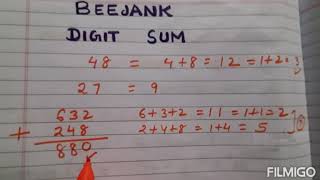 BEEJANK
DIGIT SUM
48 = 4+8 = 12 = 1+2 = 3
27 = 9
632 6+3+2 = 11 = 1+1 = 2
+ 248 2+4+8 = 1+4 = 5
880
FILMIGO